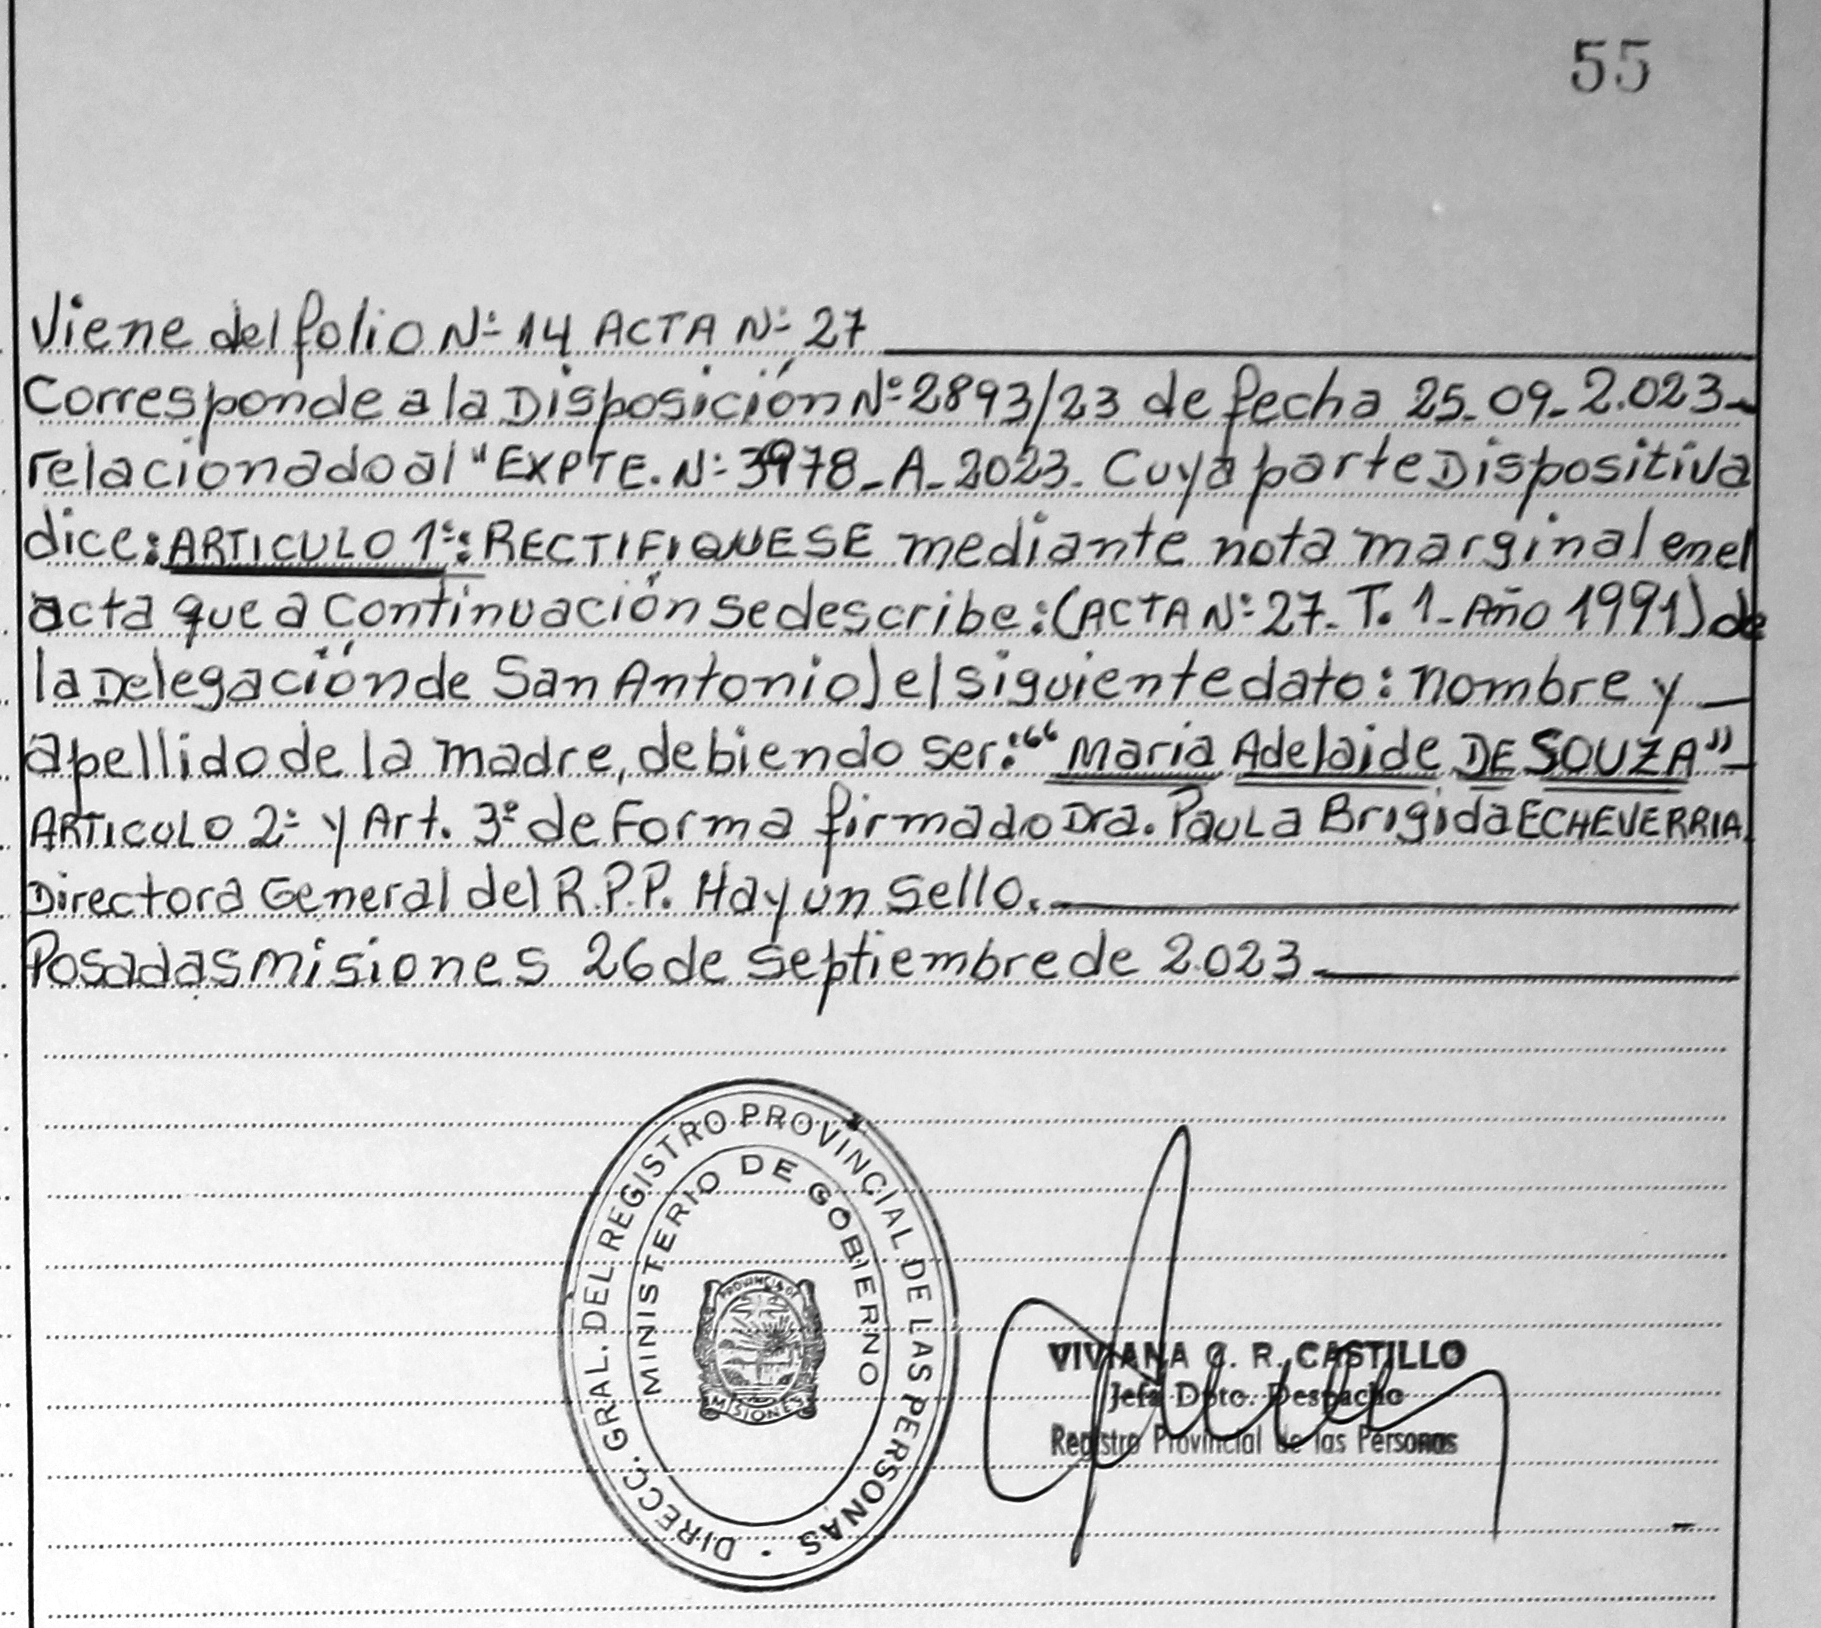 55
Viene del folio Nº 14 ACTA Nº 27
Corresponde a la Disposición Nº 2893/23 de fecha 25-09-2.023-
relacionado al "EXPTE. Nº 3978-A-2023. Cuya parte Dispositiva
dice: ARTICULO 1º: RECTIFIQUESE mediante nota marginal en el
acta que a Continuación se describe: (ACTA Nº 27-T. 1-Año 1991) de
la Delegación de San Antonio) el siguiente dato: nombre y
apellido de la madre, debiendo ser: "Maria Adelaide DE SOUZA"-
ARTICULO 2º y Art. 3º de Forma firmado Dra. Paula Brigida ECHEVERRIA
Directora General del R.P.P. Hay un Sello.
Posadas Misiones 26 de Septiembre de 2.023-
DIRECC. GRAL. DEL REGISTRO PROVINCIAL DE LAS PERSONAS
MINISTERIO DE GOBIERNO
PROVINCIA DE
MISIONES
VIVIANA C. R. CASTILLO
Jefa Dpto. Despacho
Registro Provincial de las Personas